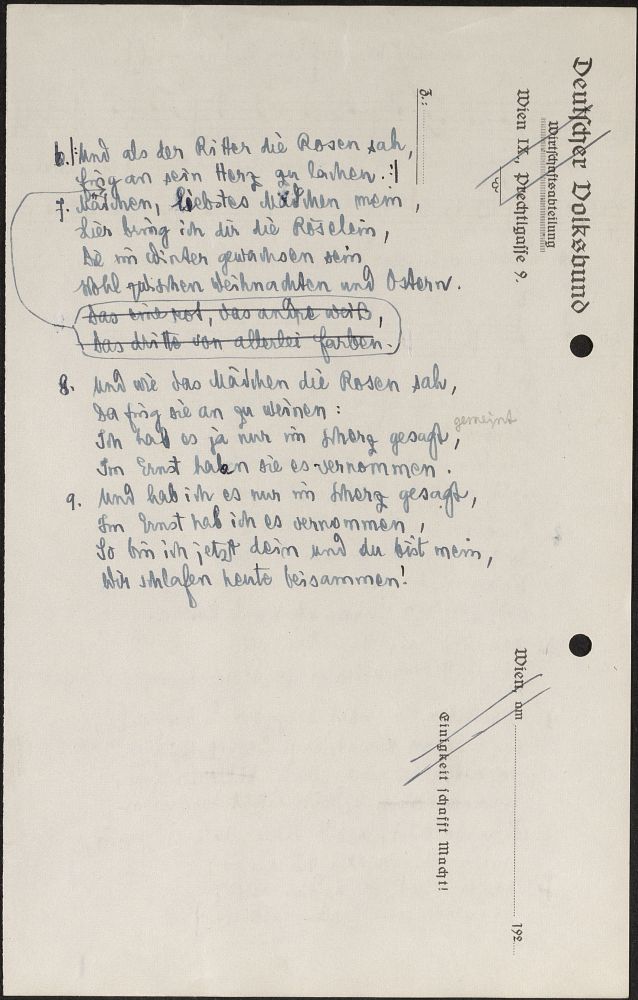 6. |: Und als der Ritter die Rosen sah,
fing an sein Herz zu lachen. :|
7. Mädchen, liebstes Mädchen mein,
Hier bring ich dir die Röselein,
Die im Winter gewachsen sein
Wohl zwischen Weihnachten und Ostern.
Das eine rot, das andre weiß,
Das dritte von allerlei Farben.
8. Und wie das Mädchen die Rosen sah,
Da fing sie an zu weinen:
Ich hab es ja nur im Scherz gesagt,
gemeint
Im Ernst haben sie es vernommen.
9. Und hab ich es nur im Scherz gesagt,
Im Ernst hab ich es vernommen,
So bin ich jetzt dein und du bist mein,
Wir schlafen heute beisammen!
Deutscher Volksbund
Wirtschaftsabteilung
Wien IX, Prechtlgasse 9.
Z.:
Wien, am 192
Einigkeit schafft Macht!